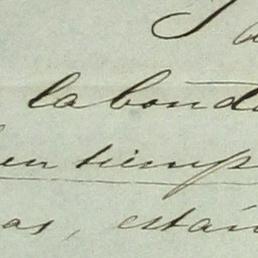 la bonda
en tiemp
as, están